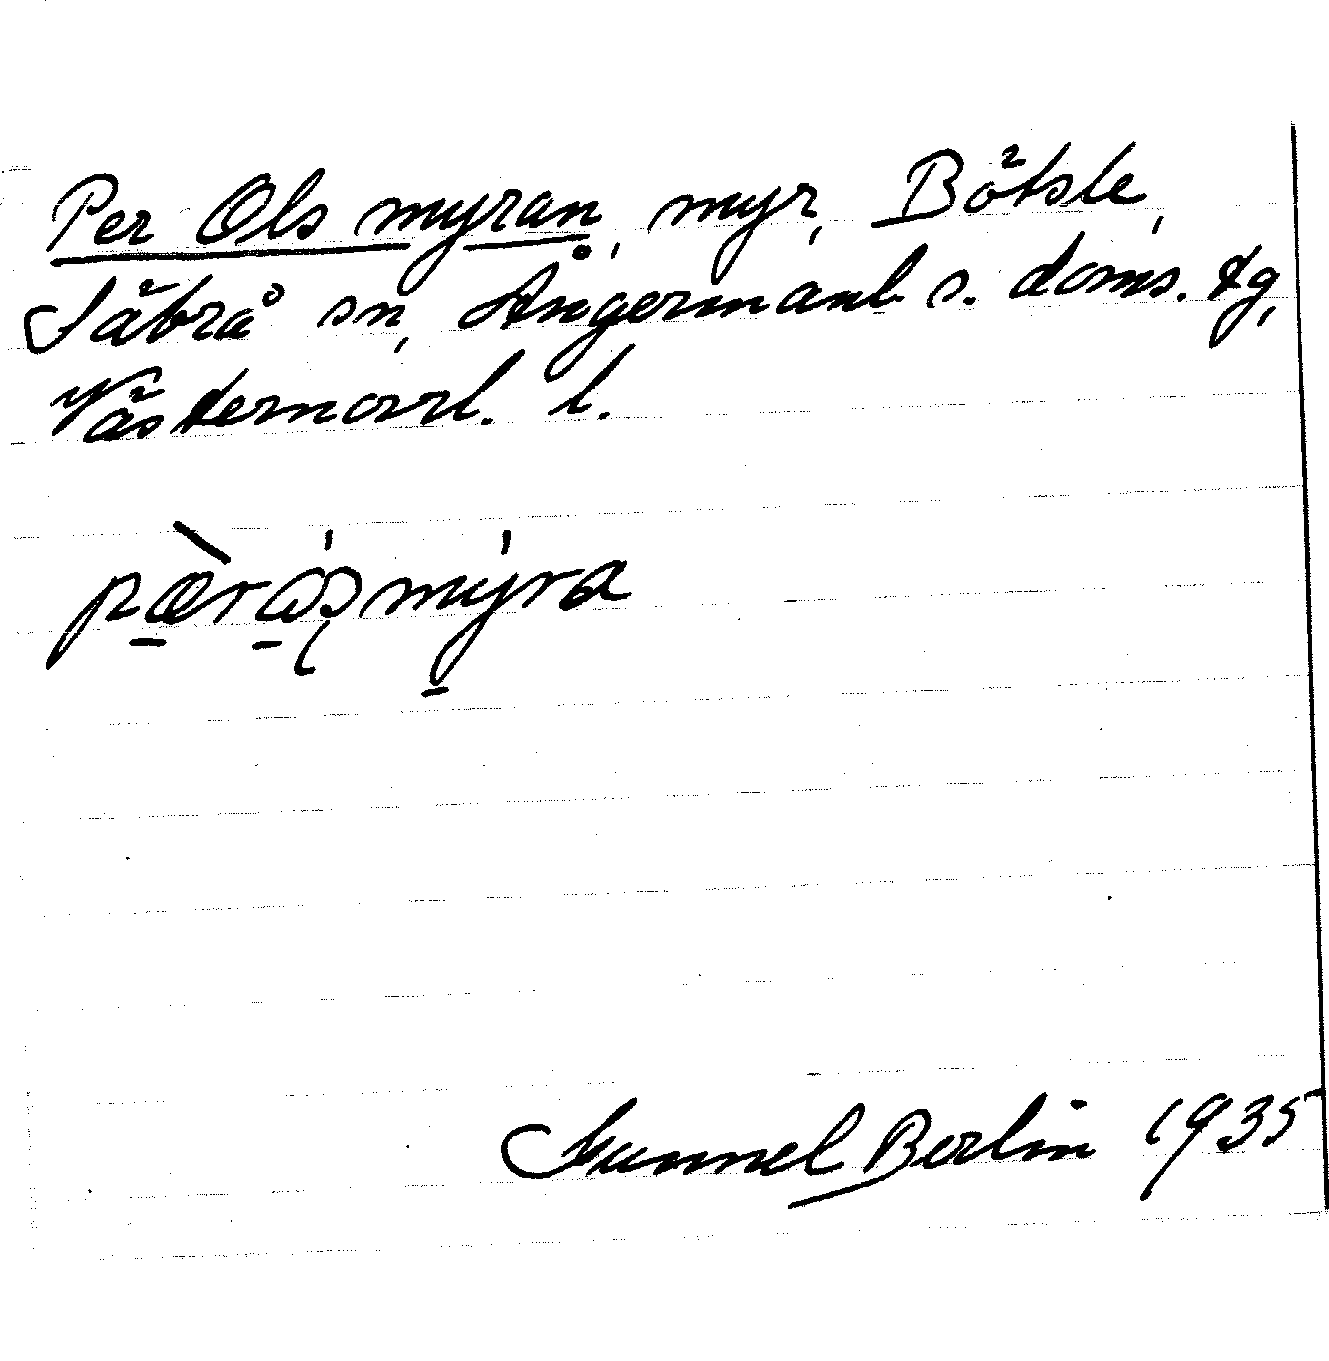 Per Ols myran, myr, Bötsle,
Säbrå sn, Ångermanl. s. doms. tg,
Västernorrl. l.
Gunnel Berlin 1935